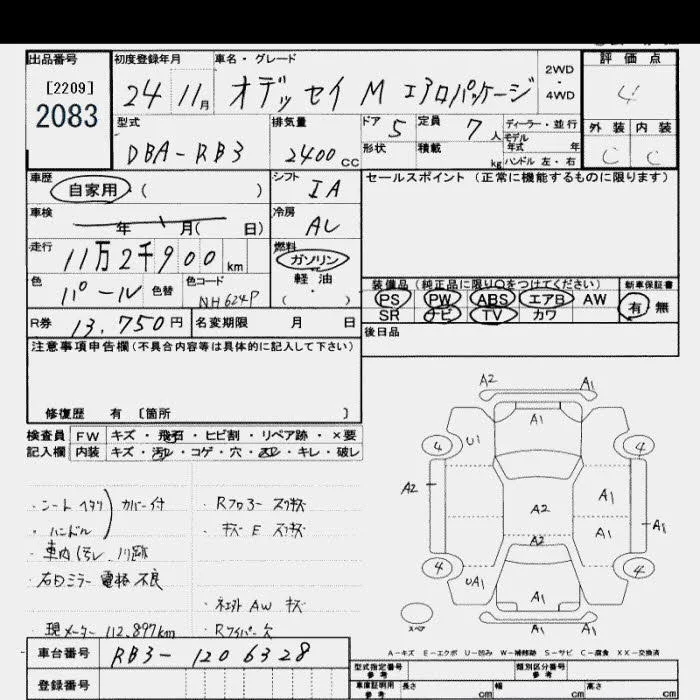 出品番号
[2209]
2083
初度登録年月
24 11月
車名・グレード
オデッセイ M エアロパッケージ
2WD
・
4WD
評価点
4
外装 内装
C C
型式
DBA-RB3
排気量
2400 cc
ドア 5
形状
定員 7人
積載 kg
ディーラー・並行
モデル年式 年
ハンドル 左・右
車歴
自家用・( )
シフト
IA
車検
年 月( 日)
冷房
AC
走行
11万2千900km
燃料
ガソリン
軽油
( )
色
パール
色替
色コード
NH624P
R券 13,750円
名変期限 月 日
セールスポイント (正常に機能するものに限ります)
装備品 (純正品に限り○をつけてください)
PS PW ABS エアB AW
SR ナビ TV カワ
新車保証書
有・無
後日品
注意事項申告欄(不具合内容等は具体的に記入して下さい)
修復歴 有 〔箇所 〕
検査員 FW キズ・飛石・ヒビ割・リペア跡・×要
記入欄 内装 キズ・汚レ・コゲ・穴・スレ・キレ・破レ
・シートヘタリ カバー付
・ハンドル
・車内汚レ
・右Dミラー電格不良
現メーター 112,897km
・Rフロアースリキズ
・キズE スリキズ
AW キズ
・Rワイパー欠
A2 A1
A1
4 U1 4
A2 A2 A1
A2 A1 A1
4 UA1 4
A1
A1
スペア
A-キズ E-エクボ U-凹み W-補修跡 S-サビ C-腐食 XX-交換済
車台番号 RB3-1206328
登録番号
型式指定番号
参考
類別区分番号
参考
車庫証明用
参考
長さ cm
幅 cm
高さ cm